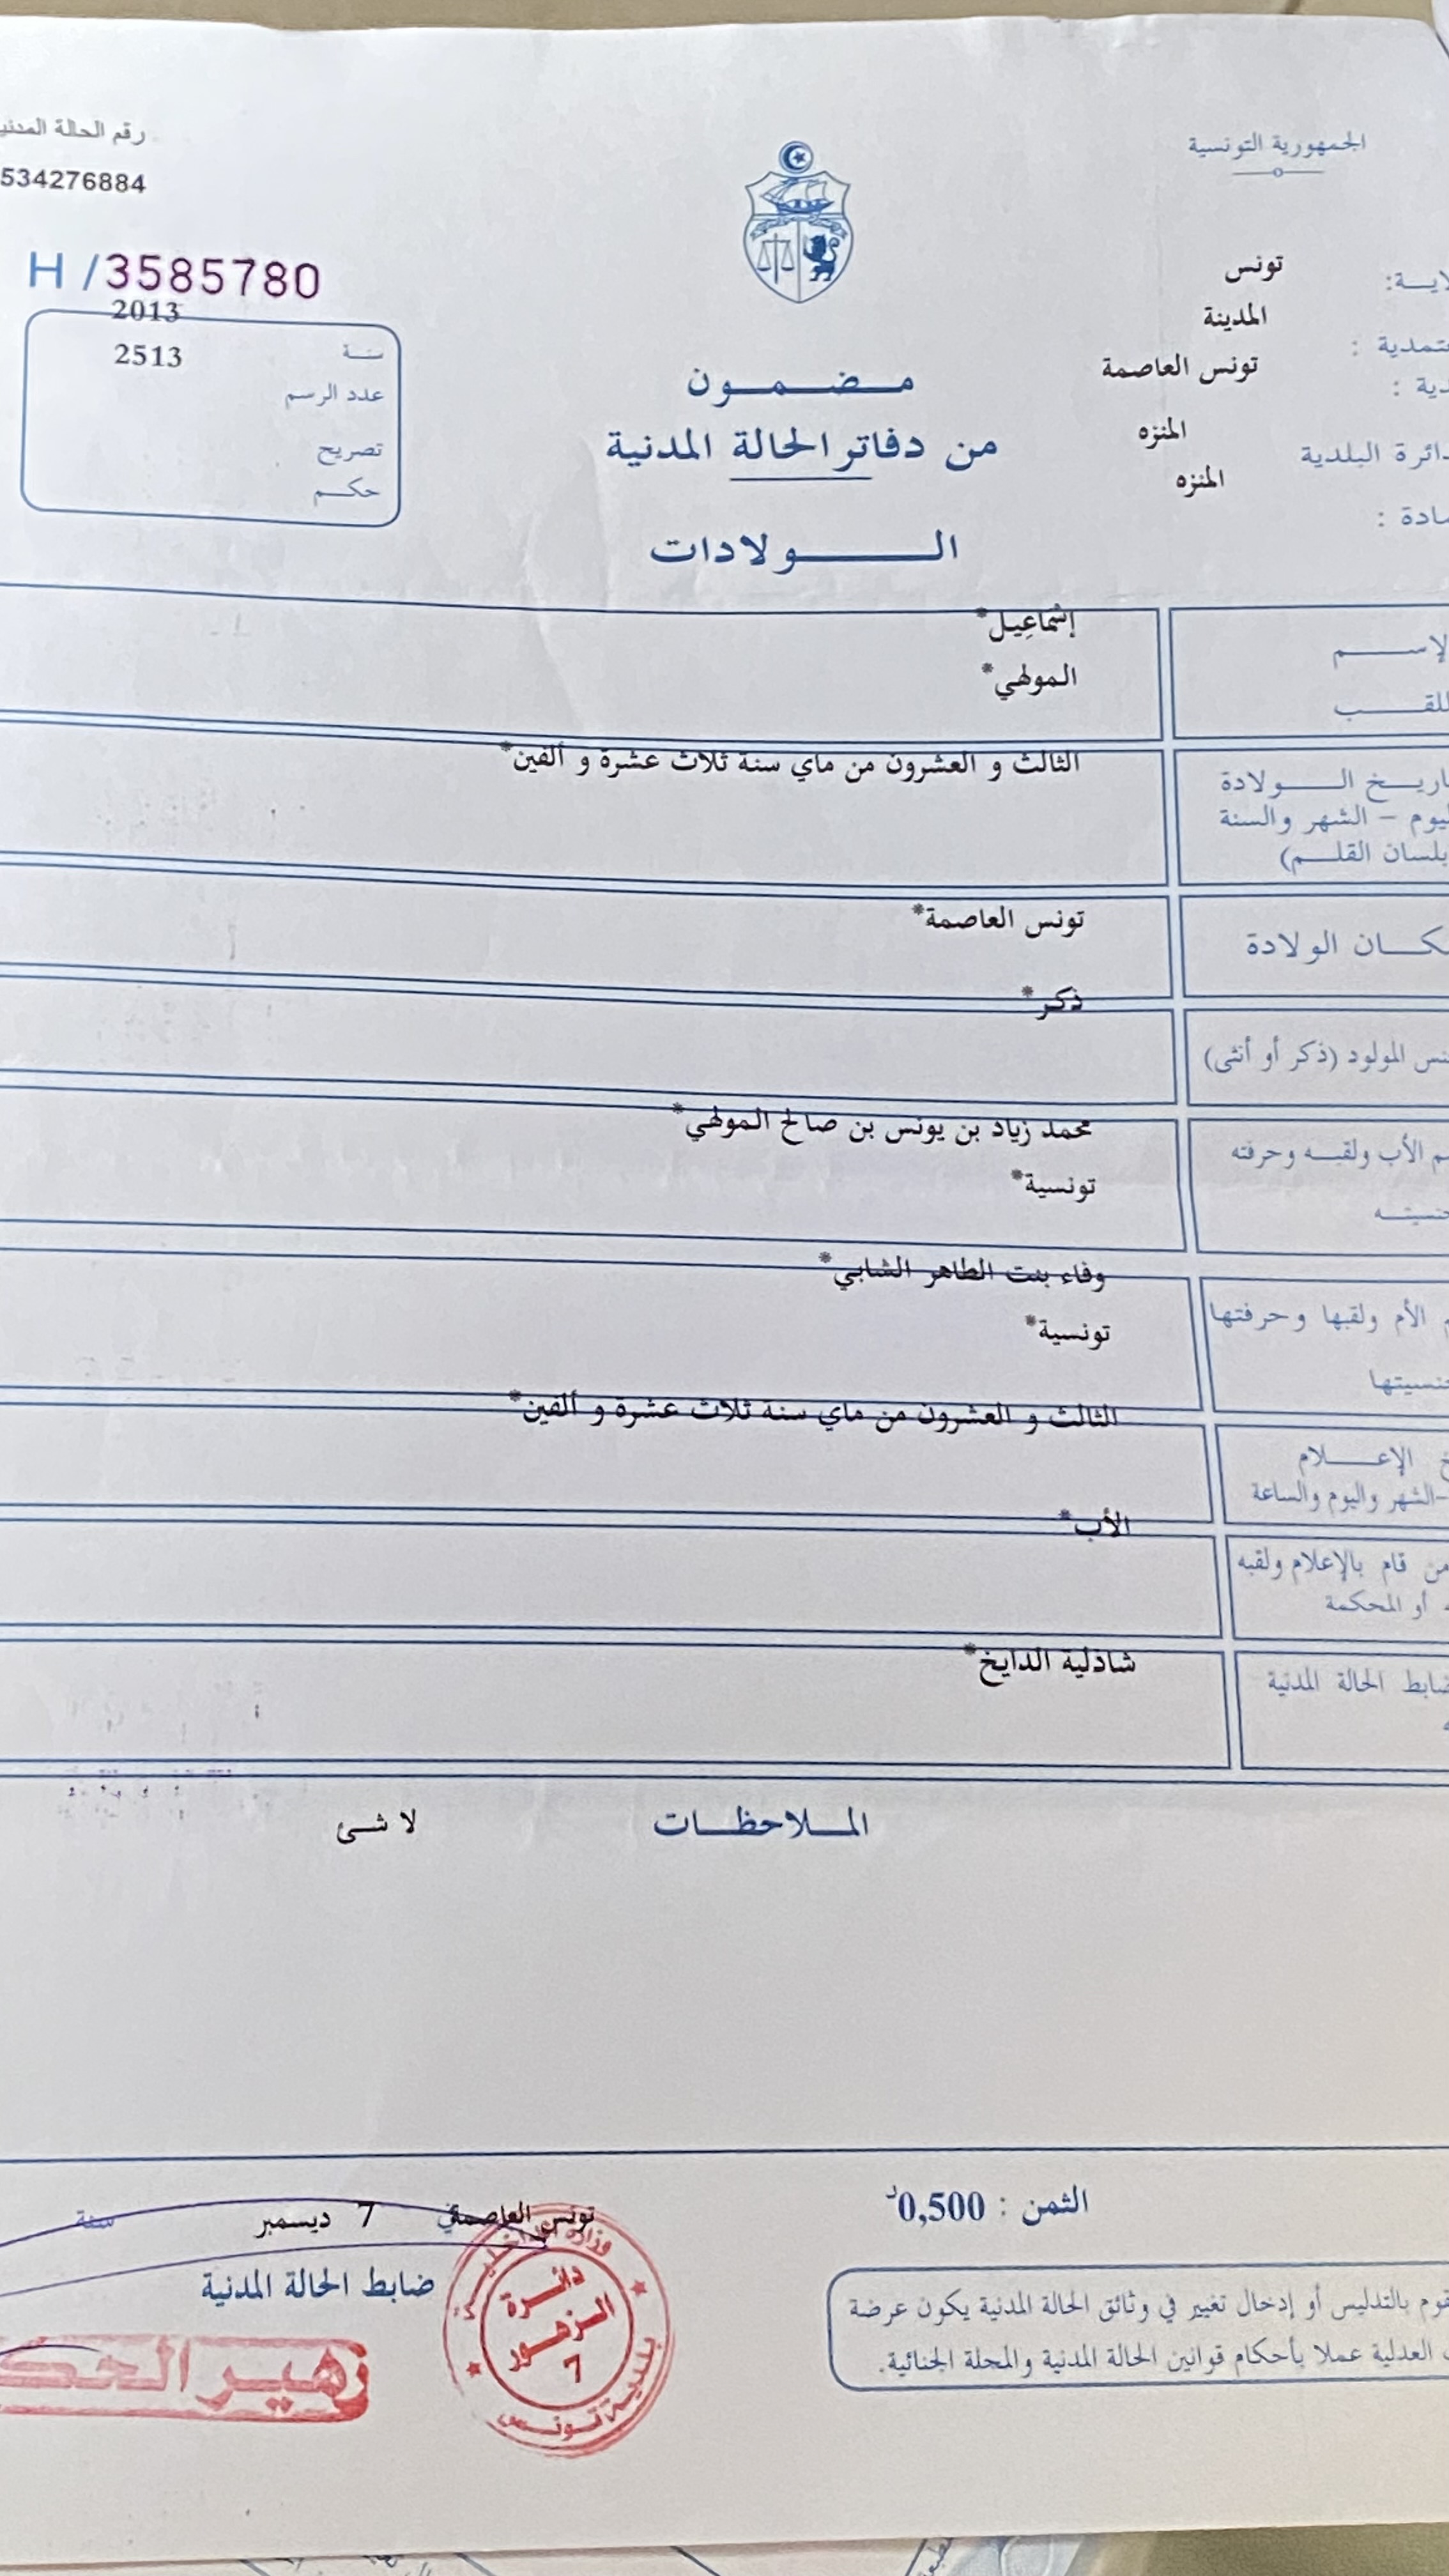 الجمهورية التونسية
رقم الحالة المدنية
534276884
H /3585780
2013
سنة
2513
عدد الرسم
تصريح
حكم
تونس
المدينة
تونس العاصمة
المنزه
دائرة البلدية
المنزه
مضمون
من دفاتر الحالة المدنية
الولادات
الإسم
إسْماعِيل*
اللقب
المولهي*
تاريخ الولادة
اليوم - الشهر والسنة
بلسان القلم)
الثالث و العشرون من ماي سنة ثلاث عشرة و ألفين*
مكان الولادة
تونس العاصمة*
جنس المولود (ذكر أو أنثى)
ذكر*
إسم الأب ولقبه وحرفته
جنسيته
محمد زياد بن يونس بن صالح المولهي*
تونسية*
الأم ولقبها وحرفتها
جنسيتها
وفاء بنت الطاهر الشابي*
تونسية*
الإعلام
-الشهر واليوم والساعة
الثالث و العشرون من ماي سنة ثلاث عشرة و ألفين*
من قام بالإعلام ولقبه
أو المحكمة
الأب*
ضابط الحالة المدنية
شاذلية الدايخ*
الملاحظات
لا شئ
الثمن : 0,500د
تونس العاصمة في 7 ديسمبر سنة
ضابط الحالة المدنية
زهير
دائرة
الزهور
7
بلدية تونس
بالتدليس أو إدخال تغيير في وثائق الحالة المدنية يكون عرضة
العدلية عملا بأحكام قوانين الحالة المدنية والمجلة الجنائية.